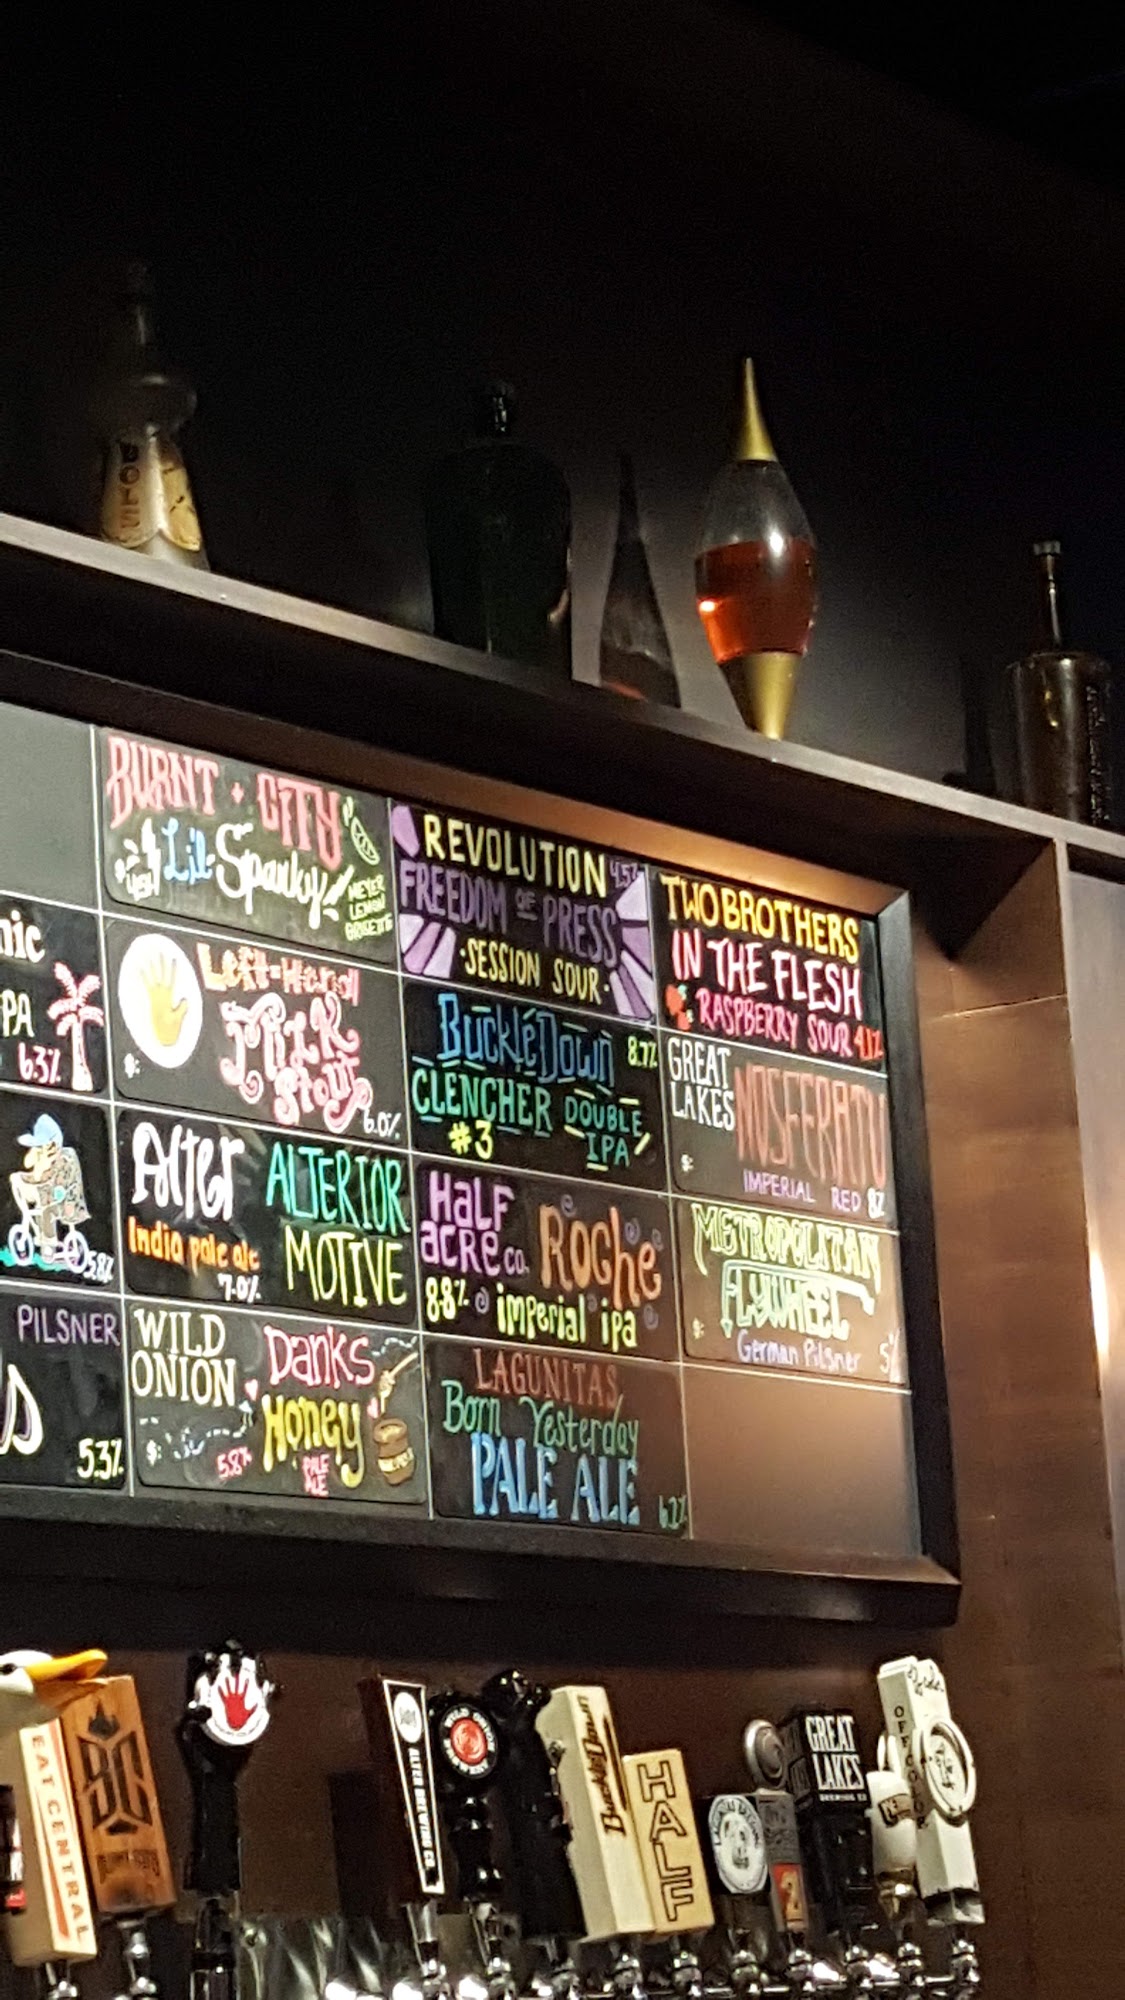 BOLS
BURNT + CITY
Lil Sparky
MEYER
LEMON
REVOLUTION 4.5%
FREEDOM OF PRESS
·SESSION SOUR·
TWO BROTHERS
IN THE FLESH
RASPBERRY SOUR 4.1%
nic
PA
6.3%
Left-Hand
Milk
Stout
6.0%
BuckleDown 8.7%
CLENCHER DOUBLE
#3 IPA
GREAT
LAKES NOSFERATU
IMPERIAL RED 8%
5.8%
Alter ALTERIOR
India pale ale MOTIVE
7.0%
Half
acre co. Roche
8.8% imperial ipa
METROPOLITAN
FLYWHEEL
German Pilsner 5%
PILSNER
5.3%
WILD
ONION Danks
Honey
5.8% PALE
ALE
LAGUNITAS
Born Yesterday
PALE ALE
EAT CENTRAL
BC
ALTER BREWING CO.
WILD ONION
BuckleDown
HALF
2
GREAT
LAKES
BREWING CO
OFF COLOR